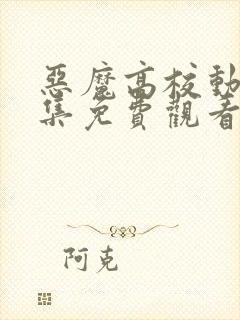 惡魔高校動
集免費觀看
阿克